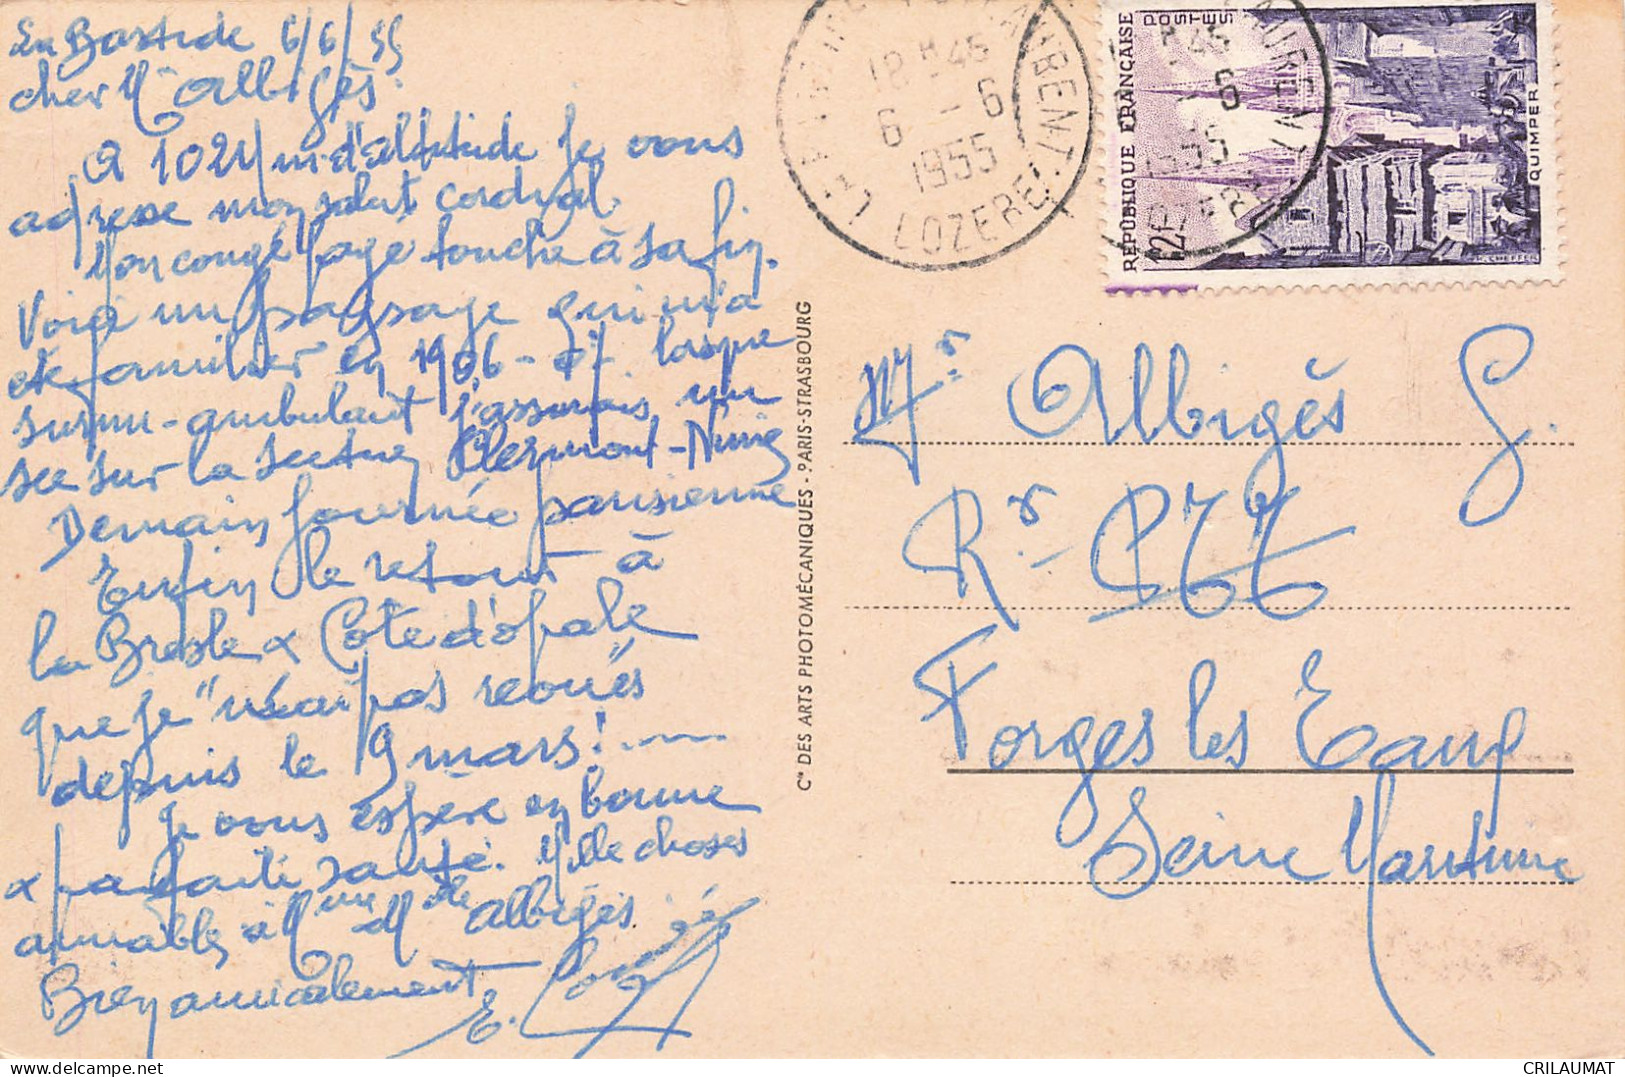 La Bastide 6/6/55
cher Mr Albigès.
A 1024 m. d'altitude je vous
adresse mon salut cordial.
Mon congé payé touche à sa fin.
Voici un paysage qui m'a
été familier en 1906-07 lorsque
surnu-ambulant j'assurais un
sce sur la section Clermont-Nimes
Demain journée parisienne
Enfin le retour à
la Bresle & Côte d'opale
que je "n'ai pas revues"
depuis le 9 mars!....
Je vous espère en bonne
& parfaite santé. Mille choses
aimables à Mme Mlle Albigès
Bien amicalement
E.
Cie DES ARTS PHOTOMÉCANIQUES - PARIS-STRASBOURG
18 H 45
6 - 6
1955
LOZERE
RÉPUBLIQUE FRANÇAISE
POSTES
12F
QUIMPER
Mr Albigès G.
Rr PTT
Forges les Eaux
Seine Maritime
CRILAUMAT